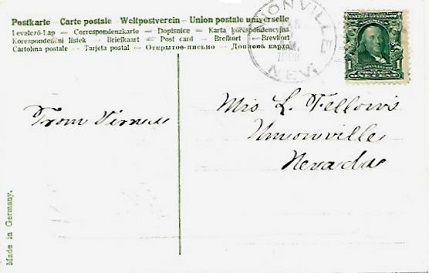 Postkarte - Carte postale - Weltpostverein - Union postale universelle
Levelező-Lap — Correspondenzkarte — Dopisnice — Karta korespondencyjna
Korespondenční listek — Briefkaart — Post card — Brefkort — Brevkort
Cartolina postale — Tarjeta postal — Открытое письмо — Дописна карта
UNIONVILLE
NEV.
1
From
Mrs L Fellows
Unionville
Nevada
Made in Germany.